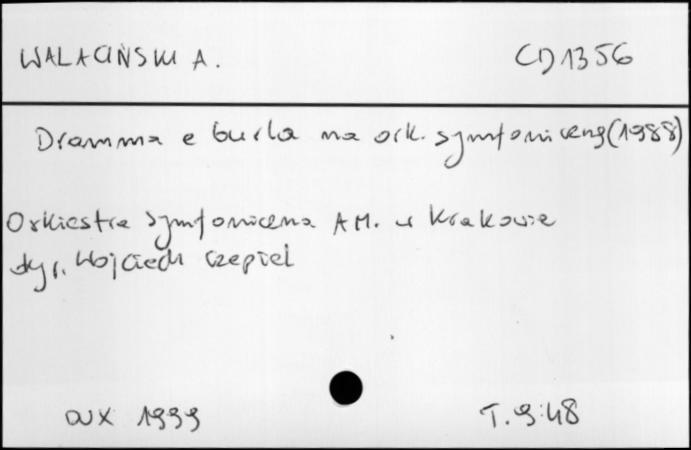 WALACIŃSKI A. CD 1356
Dramma e burla na ork. symfoniczną (1988)
Orkiestra Symfoniczna AM. w Krakowie
dyr. Wojciech Czepiel
DUX 1999 T. 9:48